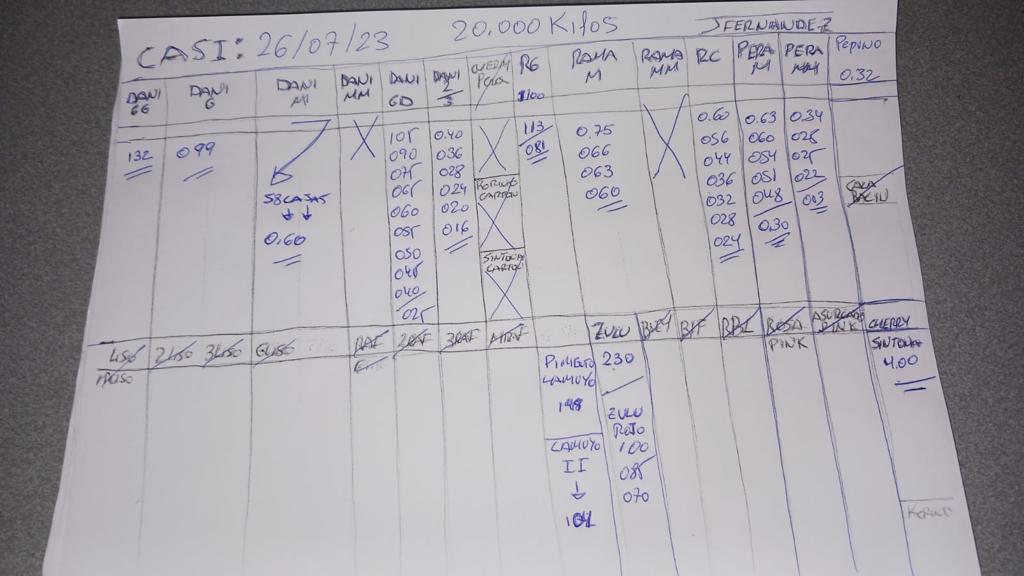 CASI: 26/07/23 20.000 Kilos JFERNANDEZ
DANI GG
DANI G
DANI M
DANI MM
DANI GD
DANI 2/3
CHERRY PERA
RG
RAMA M
RAMA MM
RC
PERA M
PERA MM
PEPINO
0.32
132
099
58CAJAS
0.60
105
090
075
065
060
055
050
045
040
025
0.40
036
028
024
020
016
CARTON
SINTONIA
CARTON
113
081
0.75
066
063
060
0.60
056
044
036
032
028
024
0.63
060
054
051
048
030
0.34
028
025
022
003
CALA
BACIN
1LISO
2LISO
3LISO
GLISO
RAF
2RAF
3RAF
MRAF
ZULU
ROSA
PINK
ASURCADO
PINK
CHERRY
SINTONIA
4.00
PIMIENTO
LAMUYO
148
LAMUYO
II
104
230
ZULU
ROJO
100
085
070